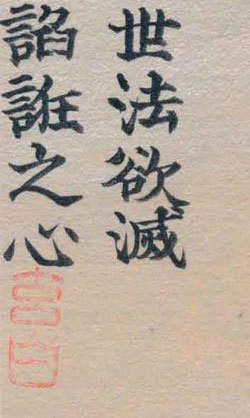 世法欲滅
諂誑之心